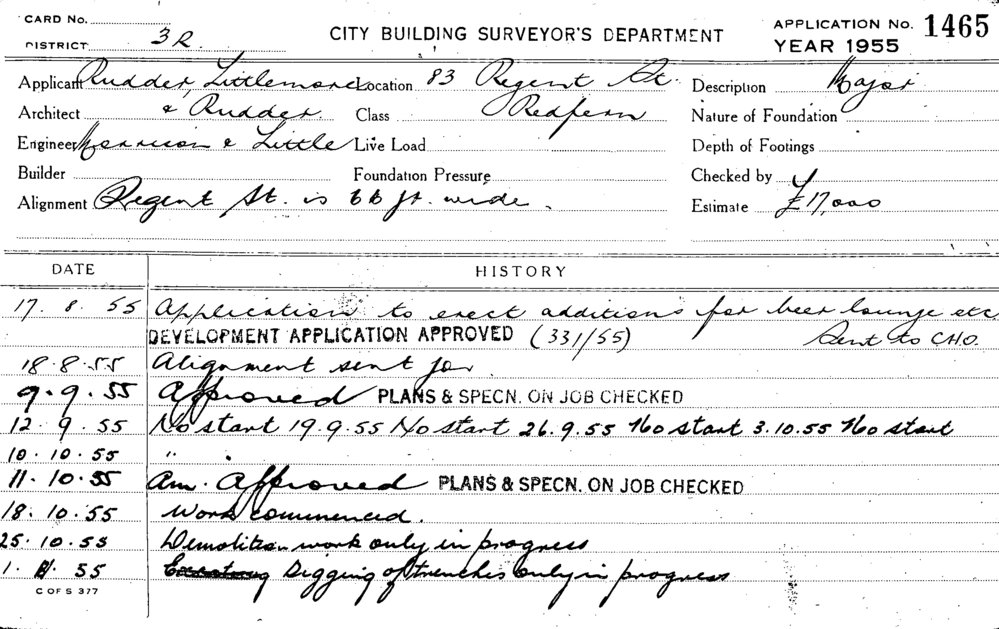 CARD No.
DISTRICT 3R.
CITY BUILDING SURVEYOR'S DEPARTMENT
APPLICATION No. 1465
YEAR 1955
Applicant Rudder, Littlemore Location 83 Regent St. Description Major
Architect & Rudder Class Redfern Nature of Foundation
Engineer Morrison & Little Live Load Depth of Footings
Builder Foundation Pressure Checked by
Alignment Regent St. is 66 ft. wide. Estimate £17,000
DATE HISTORY
17. 8. 55 Application to erect additions for beer lounge etc.
DEVELOPMENT APPLICATION APPROVED (331/55) Sent to C.H.O.
18.8.55 Alignment sent for
9.9.55 Approved PLANS & SPECN. ON JOB CHECKED
12.9.55 No start 19.9.55 No start 26.9.55 No start 3.10.55 No start
10.10.55 " .
11.10.55 Am. Approved PLANS & SPECN. ON JOB CHECKED
18.10.55 Work commenced.
25.10.55 Demolition work only in progress
1. 11. 55 Digging of trenches only in progress
C OF S 377